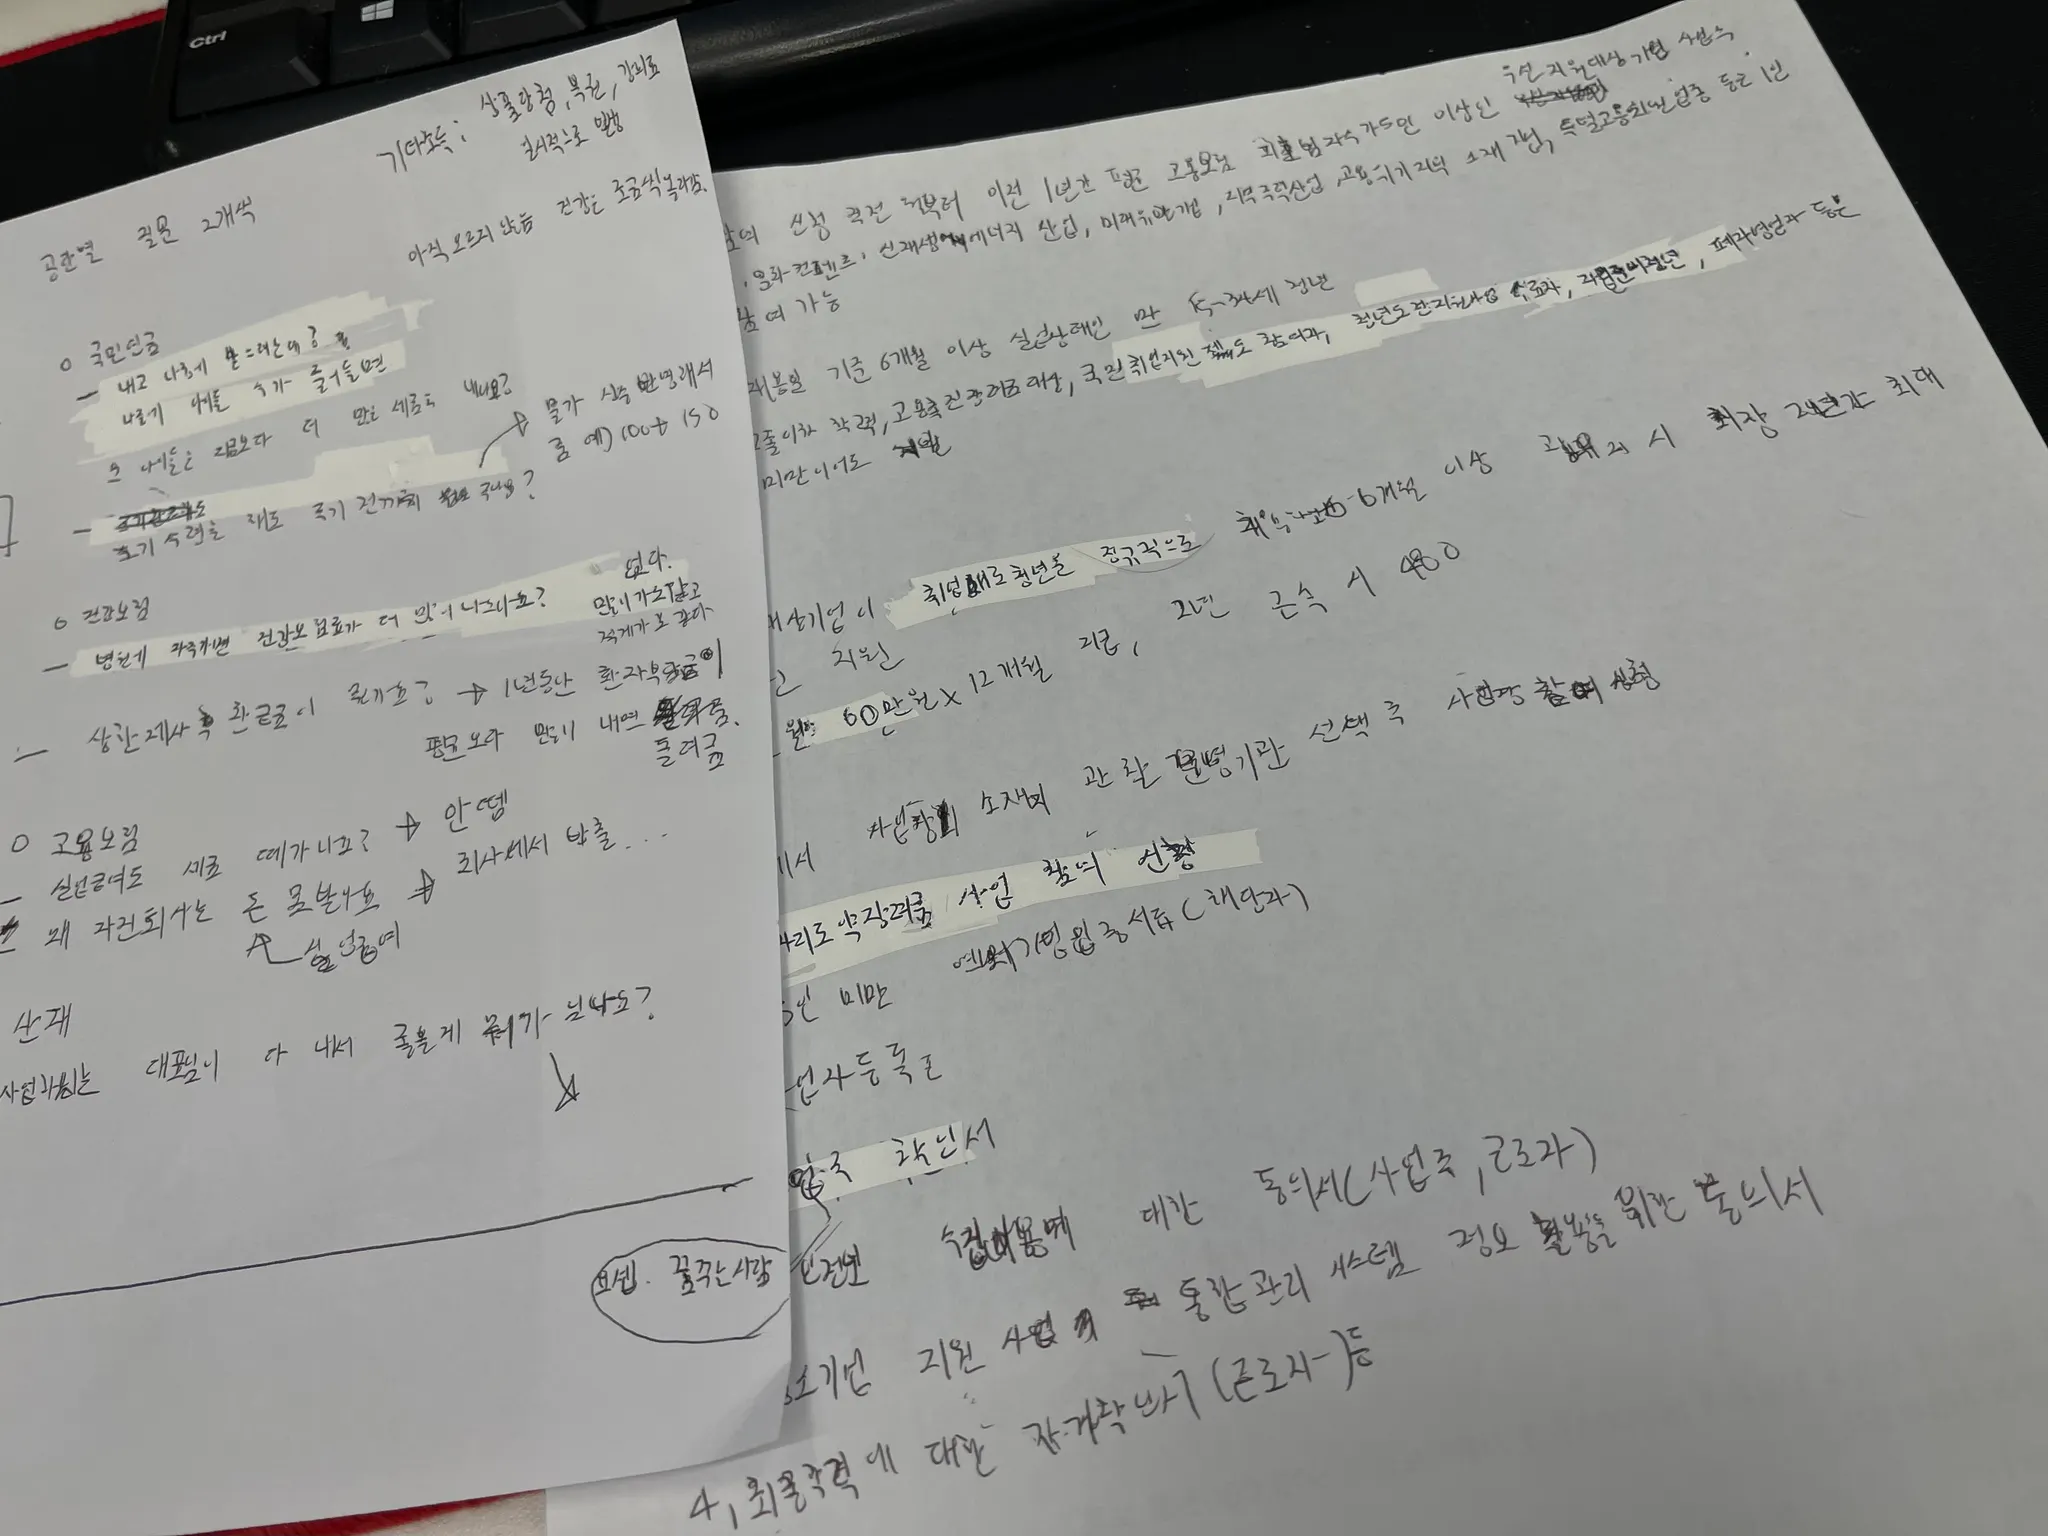 Ctrl
기타소득: 상품당첨, 복권, 강의료
일시적으로 발생
공단별 질문 2개씩
아직 오르지 않음 건강은 조금씩 올라감.
o 국민연금
- 내고 나중에 받으려는데?
나중에 애들 수가 줄어들면
그 나이들은 지금보다 더 많은 세금을 내나요?
→ 물가 상승 반영해서
줌 예) 100 → 150
- 조기수령을 해도 죽기 전까지 주나요?
o 건강보험
- 병원에 자주가면 건강보험료가 더 많이 나오나요?
없다.
많이 가도 같고
적게 가도 같다.
- 상한제 사후 환급금이 뭔가요? → 1년동안 환자부담금이
평균보다 많이 내면
돌려줌.
o 고용보험
- 실업급여도 세금 떼가나요? → 안 뗌
- 왜 자진퇴사는 돈 못받나요 → 회사에서 방출...
실업급여
산재
대표님이 다 내서 좋을게 뭐가 있나요?
요셉. 꿈꾸는 사람
우선지원대상기업 사업주
참여 신청 직전 월부터 이전 1년간 평균 고용보험 피보험자수가 5인 이상인
문화콘텐츠, 신재생에너지 산업, 미래유망기업, 지역주력산업, 고용위기지역 소재 기업, 특별고용지원업종 등은 1인
참여 가능
채용일 기준 6개월 이상 실업상태인 만 15~34세 청년
고졸이하 학력, 고용촉진장려금 대상, 국민취업지원제도 참여자, 청년도전지원사업 수료자, 자립준비청년, 폐자영업자 등은
미만이어도
대상기업이 취업애로청년을 정규직으로 채용하고 6개월 이상 고용유지 시 최장 2년간 최대
지원
월 60만원 × 12개월 지급, 2년 근속 시 480
에서 사업장 소재지 관할 운영기관 선택 후 사업장 참여 신청
일자리도약장려금 사업 참여 신청
5인 미만 예외기업 입증서류 (해당자)
사업자등록증
확인서
수집이용에 대한 동의서 (사업주, 근로자)
중소기업 지원사업 통합관리시스템 정보 활용을 위한 동의서
4, 최종학력에 대한 자기확인서 (근로자) 등